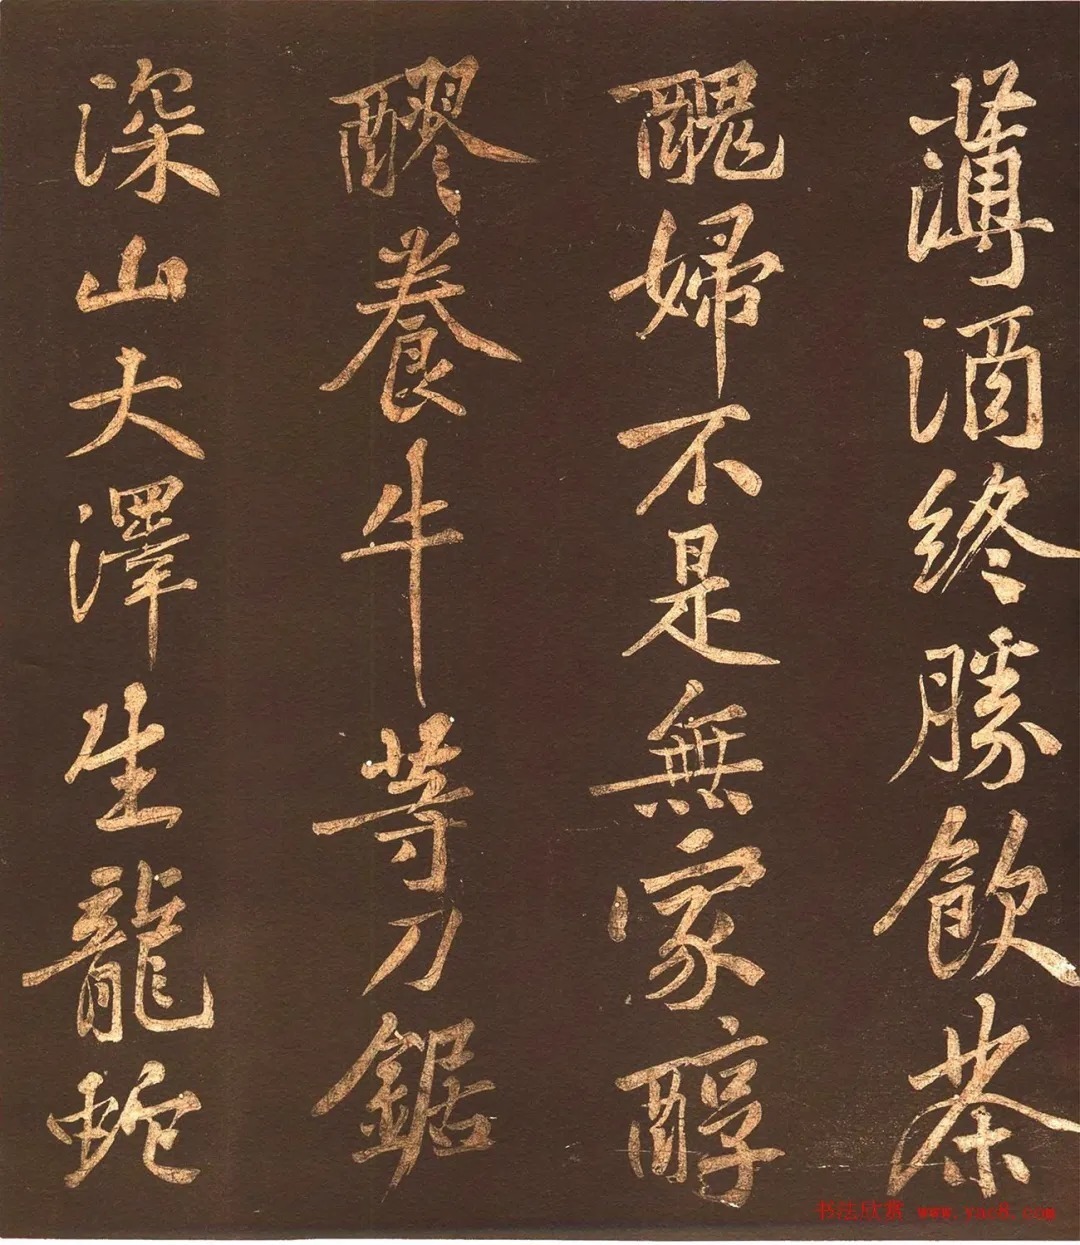 薄酒終勝飲茶
醜婦不是無家醇
醪養牛等刀鋸
深山大澤生龍蛇
书法欣赏 www.yac8.com